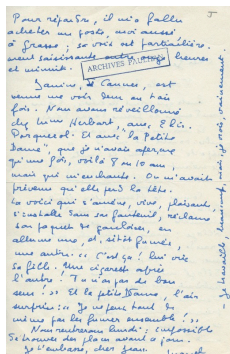 Pour repartir, il m'a fallu
acheter un poste, moi aussi
à Grasse ; sa voix est particulière-
ment saisissante entre onze heures
et minuit.
ARCHIVES PAUL
Janine, de Cannes, est
venue me voir seul en trois
fois. Nous avons réveillonné
chez Mme Herbart, avec Elis.
Et aussi "la Petite
Dame", que je n'avais aperçue
qu'une fois, voilà 8 ou 10 ans,
mais qui m'enchante. On m'avait
prévenu qu'elle perd la tête.
La voici qui s'amène, vive, plaisant
s'installe dans son fauteuil, réclame
son paquet de gauloises, en
allume une, et, sitôt fumée,
une autre. « C'est ça ! lui crie
sa fille. Une cigarette après
l'autre. Tu n'as pas de bon
sens ! » Et la petite Dame, l'air
surpris : « Je ne peux tout
même pas les fumer ensemble ! »
Nous rentrerons lundi ; impossible
de trouver des places avant ce jour.
Je t'embrasse, cher Jean.
Je travaille beaucoup, mais, je crois, vainement.